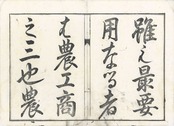 雖も最要
用なる者
は農工商
之三也農